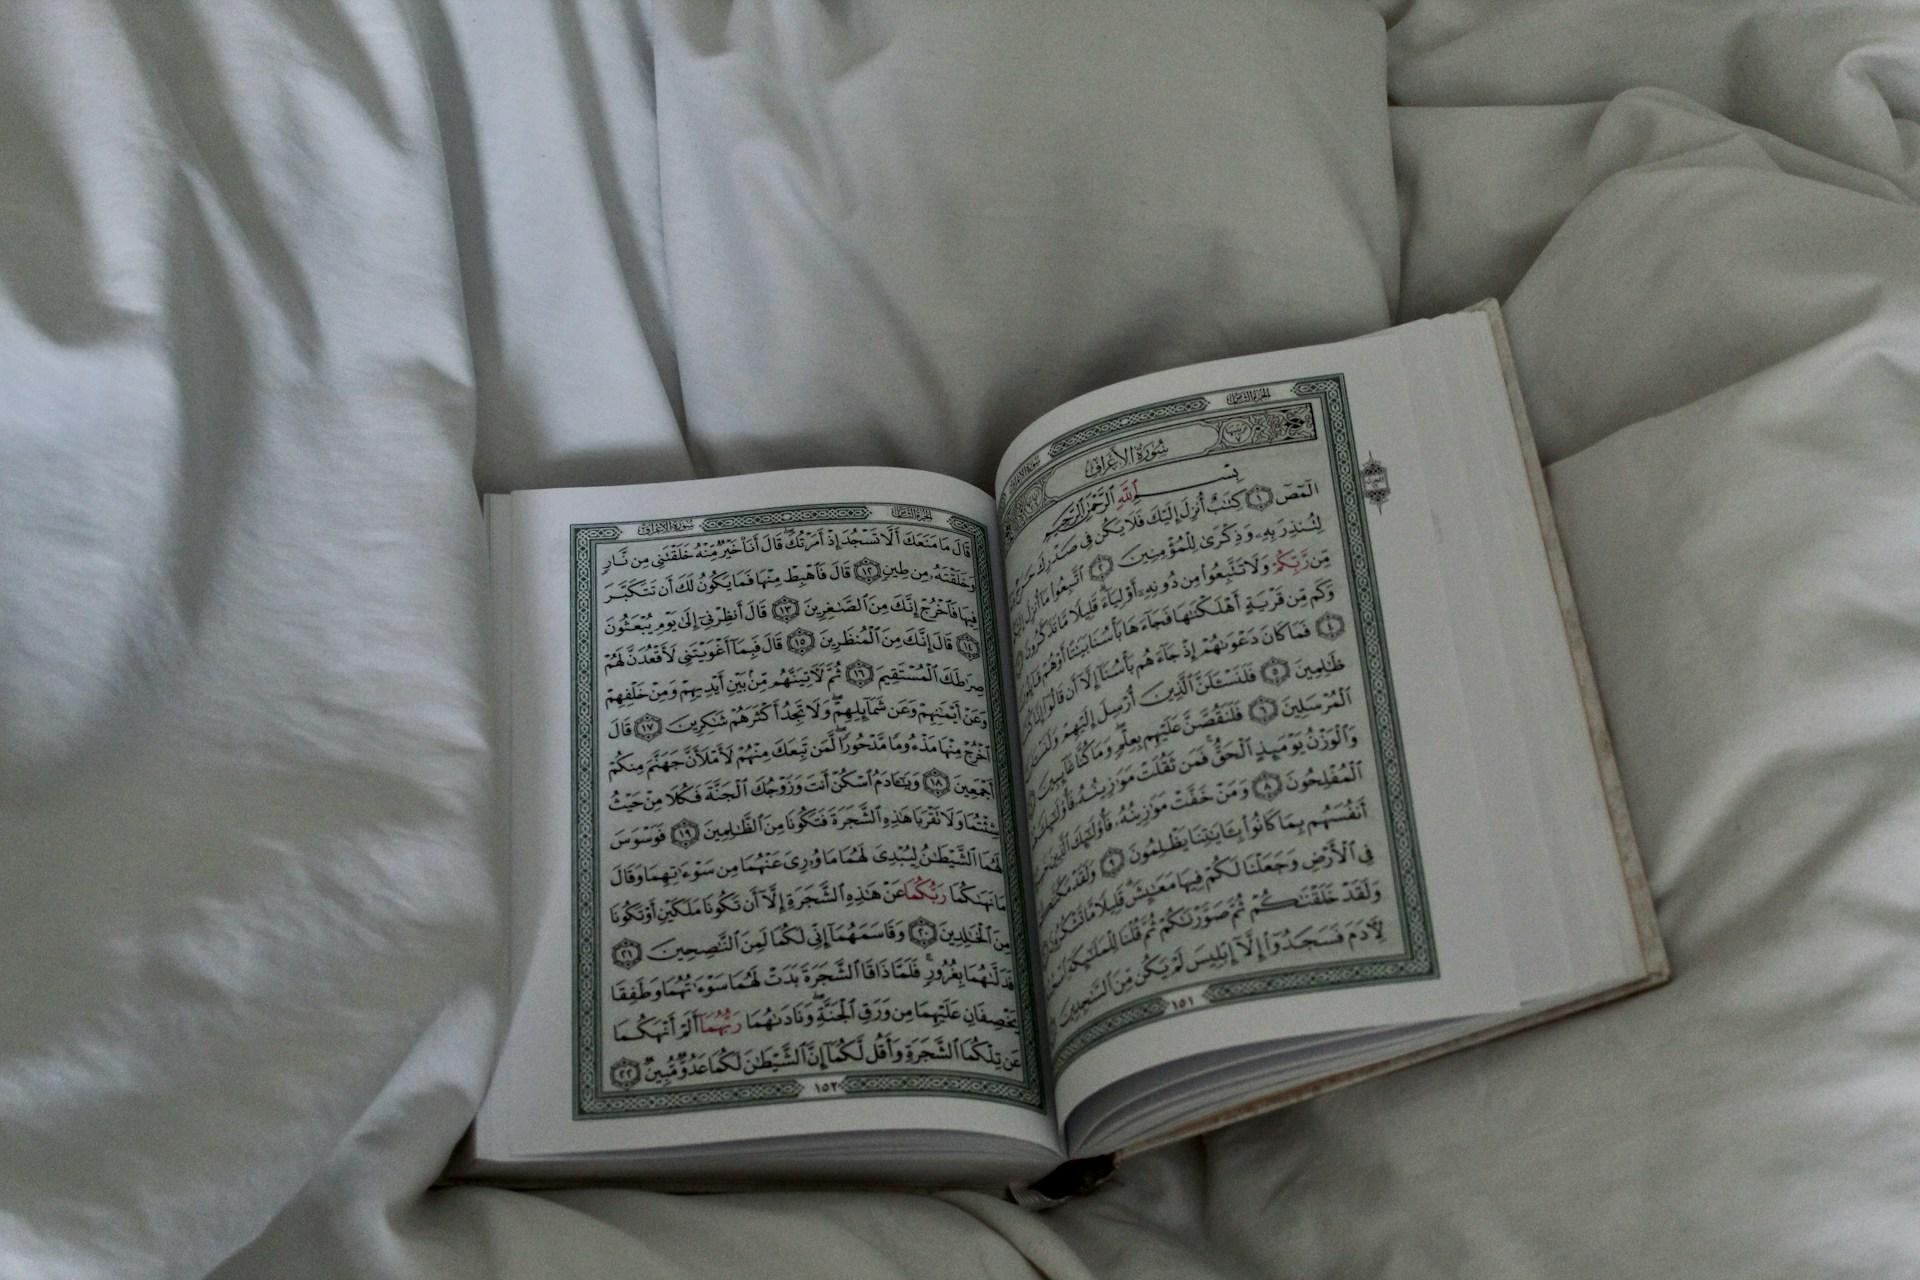 الجزء الثامن
سُورَةُ الأَعْرَافِ
بِسْمِ ٱللَّهِ ٱلرَّحْمَٰنِ ٱلرَّحِيمِ
الٓمٓصٓ ١ كِتَٰبٌ أُنزِلَ إِلَيْكَ فَلَا يَكُن فِى صَدْرِكَ حَرَجٌ
لِتُنذِرَ بِهِۦ وَذِكْرَىٰ لِلْمُؤْمِنِينَ ٢ ٱتَّبِعُوا۟ مَآ أُنزِلَ
مِّن رَّبِّكُمْ وَلَا تَتَّبِعُوا۟ مِن دُونِهِۦٓ أَوْلِيَآءَ ۗ قَلِيلًا مَّا تَذَكَّرُونَ
وَكَم مِّن قَرْيَةٍ أَهْلَكْنَٰهَا فَجَآءَهَا بَأْسُنَا بَيَٰتًا أَوْ هُمْ قَآئِلُونَ
٤ فَمَا كَانَ دَعْوَىٰهُمْ إِذْ جَآءَهُم بَأْسُنَآ إِلَّآ أَن قَالُوٓا۟ إِنَّا كُنَّا
ظَٰلِمِينَ ٥ فَلَنَسْـَٔلَنَّ ٱلَّذِينَ أُرْسِلَ إِلَيْهِمْ وَلَنَسْـَٔلَنَّ
ٱلْمُرْسَلِينَ ٦ فَلَنَقُصَّنَّ عَلَيْهِم بِعِلْمٍ ۖ وَمَا كُنَّا غَآئِبِينَ
وَٱلْوَزْنُ يَوْمَئِذٍ ٱلْحَقُّ ۚ فَمَن ثَقُلَتْ مَوَٰزِينُهُۥ فَأُو۟لَٰٓئِكَ هُمُ
ٱلْمُفْلِحُونَ ٨ وَمَنْ خَفَّتْ مَوَٰزِينُهُۥ فَأُو۟لَٰٓئِكَ ٱلَّذِينَ
أَنفُسَهُم بِمَا كَانُوا۟ بِـَٔايَٰتِنَا يَظْلِمُونَ ٩ وَلَقَدْ مَكَّنَّٰكُمْ
فِى ٱلْأَرْضِ وَجَعَلْنَا لَكُمْ فِيهَا مَعَٰيِشَ ۗ قَلِيلًا مَّا تَشْكُرُونَ
وَلَقَدْ خَلَقْنَٰكُمْ ثُمَّ صَوَّرْنَٰكُمْ ثُمَّ قُلْنَا لِلْمَلَٰٓئِكَةِ ٱسْجُدُوا۟
لِءَادَمَ فَسَجَدُوٓا۟ إِلَّآ إِبْلِيسَ لَمْ يَكُن مِّنَ ٱلسَّٰجِدِينَ
١٥١
الجزء الثامن سورة الأعراف
قَالَ مَا مَنَعَكَ أَلَّا تَسْجُدَ إِذْ أَمَرْتُكَ ۖ قَالَ أَنَا۠ خَيْرٌ مِّنْهُ خَلَقْتَنِى مِن نَّارٍ
وَخَلَقْتَهُۥ مِن طِينٍ ١٢ قَالَ فَٱهْبِطْ مِنْهَا فَمَا يَكُونُ لَكَ أَن تَتَكَبَّرَ
فِيهَا فَٱخْرُجْ إِنَّكَ مِنَ ٱلصَّٰغِرِينَ ١٣ قَالَ أَنظِرْنِىٓ إِلَىٰ يَوْمِ يُبْعَثُونَ
١٤ قَالَ إِنَّكَ مِنَ ٱلْمُنظَرِينَ ١٥ قَالَ فَبِمَآ أَغْوَيْتَنِى لَأَقْعُدَنَّ لَهُمْ
صِرَٰطَكَ ٱلْمُسْتَقِيمَ ١٦ ثُمَّ لَءَاتِيَنَّهُم مِّنۢ بَيْنِ أَيْدِيهِمْ وَمِنْ خَلْفِهِمْ
وَعَنْ أَيْمَٰنِهِمْ وَعَن شَمَآئِلِهِمْ ۖ وَلَا تَجِدُ أَكْثَرَهُمْ شَٰكِرِينَ ١٧ قَالَ
ٱخْرُجْ مِنْهَا مَذْءُومًا مَّدْحُورًا ۖ لَّمَن تَبِعَكَ مِنْهُمْ لَأَمْلَأَنَّ جَهَنَّمَ مِنكُمْ
أَجْمَعِينَ ١٨ وَيَٰٓـَٔادَمُ ٱسْكُنْ أَنتَ وَزَوْجُكَ ٱلْجَنَّةَ فَكُلَا مِنْ حَيْثُ
شِئْتُمَا وَلَا تَقْرَبَا هَٰذِهِ ٱلشَّجَرَةَ فَتَكُونَا مِنَ ٱلظَّٰلِمِينَ ١٩ فَوَسْوَسَ
لَهُمَا ٱلشَّيْطَٰنُ لِيُبْدِىَ لَهُمَا مَا وُۥرِىَ عَنْهُمَا مِن سَوْءَٰتِهِمَا وَقَالَ
مَا نَهَىٰكُمَا رَبُّكُمَا عَنْ هَٰذِهِ ٱلشَّجَرَةِ إِلَّآ أَن تَكُونَا مَلَكَيْنِ أَوْ تَكُونَا
مِنَ ٱلْخَٰلِدِينَ ٢٠ وَقَاسَمَهُمَآ إِنِّى لَكُمَا لَمِنَ ٱلنَّٰصِحِينَ ٢١
فَدَلَّىٰهُمَا بِغُرُورٍ ۚ فَلَمَّا ذَاقَا ٱلشَّجَرَةَ بَدَتْ لَهُمَا سَوْءَٰتُهُمَا وَطَفِقَا
يَخْصِفَانِ عَلَيْهِمَا مِن وَرَقِ ٱلْجَنَّةِ ۖ وَنَادَىٰهُمَا رَبُّهُمَآ أَلَمْ أَنْهَكُمَا
عَن تِلْكُمَا ٱلشَّجَرَةِ وَأَقُل لَّكُمَآ إِنَّ ٱلشَّيْطَٰنَ لَكُمَا عَدُوٌّ مُّبِينٌ ٢٢
١٥٢